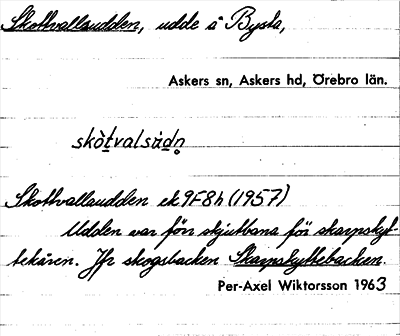 Skottvallsudden, udde å Bysta,
Askers sn, Askers hd, Örebro län.
skòt̠valsùdn̥
Skottvallsudden ek 9F8h (1957)
Udden var förr skjutbana för skarpskyt-
tekåren. Jfr skogsbacken Skarpskyttebacken.
Per-Axel Wiktorsson 1963